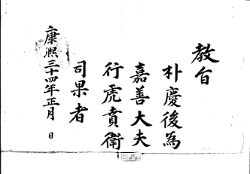 教旨
朴慶後為
嘉善大夫
行虎賁衛
司果者
康熙三十四年正月 日